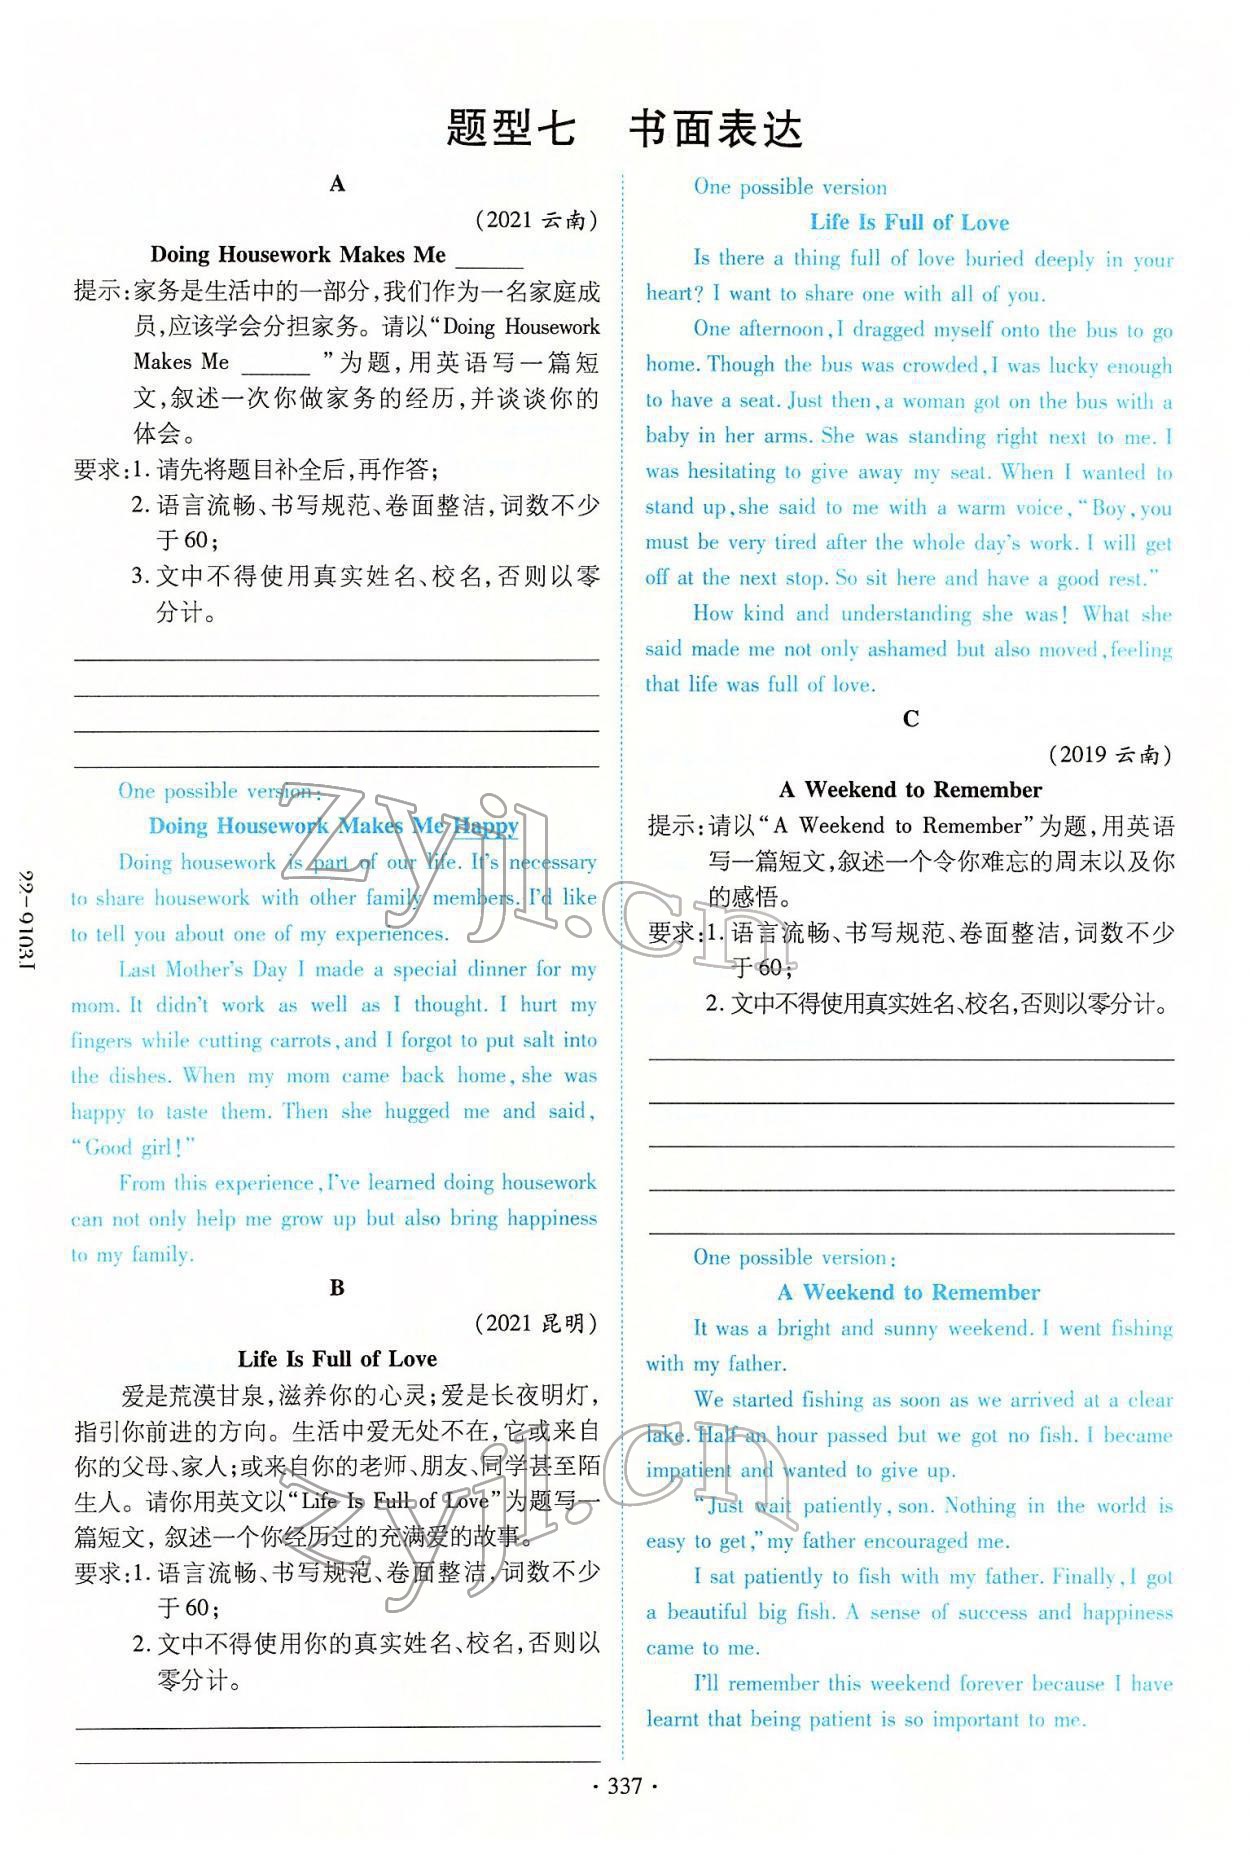 题型七 书面表达
A
(2021 云南)
Doing Housework Makes Me ______
提示:家务是生活中的一部分,我们作为一名家庭成
员,应该学会分担家务。请以“Doing Housework
Makes Me ______ ”为题,用英语写一篇短
文,叙述一次你做家务的经历,并谈谈你的
体会。
要求:1. 请先将题目补全后,再作答;
2. 语言流畅、书写规范、卷面整洁,词数不少
于60;
3. 文中不得使用真实姓名、校名,否则以零
分计。
One possible version:
Doing Housework Makes Me Happy
Doing housework is part of our life. It's necessary
to share housework with other family members. I'd like
to tell you about one of my experiences.
Last Mother's Day I made a special dinner for my
mom. It didn't work as well as I thought. I hurt my
fingers while cutting carrots, and I forgot to put salt into
the dishes. When my mom came back home, she was
happy to taste them. Then she hugged me and said,
“Good girl!”
From this experience, I've learned doing housework
can not only help me grow up but also bring happiness
to my family.
B
(2021 昆明)
Life Is Full of Love
爱是荒漠甘泉,滋养你的心灵;爱是长夜明灯,
指引你前进的方向。生活中爱无处不在,它或来自
你的父母、家人;或来自你的老师、朋友、同学甚至陌
生人。请你用英文以“Life Is Full of Love”为题写一
篇短文,叙述一个你经历过的充满爱的故事。
要求:1. 语言流畅、书写规范、卷面整洁,词数不少
于60;
2. 文中不得使用你的真实姓名、校名,否则以
零分计。
One possible version
Life Is Full of Love
Is there a thing full of love buried deeply in your
heart? I want to share one with all of you.
One afternoon, I dragged myself onto the bus to go
home. Though the bus was crowded, I was lucky enough
to have a seat. Just then, a woman got on the bus with a
baby in her arms. She was standing right next to me. I
was hesitating to give away my seat. When I wanted to
stand up, she said to me with a warm voice, “Boy, you
must be very tired after the whole day's work. I will get
off at the next stop. So sit here and have a good rest.”
How kind and understanding she was! What she
said made me not only ashamed but also moved, feeling
that life was full of love.
C
(2019 云南)
A Weekend to Remember
提示:请以“A Weekend to Remember”为题,用英语
写一篇短文,叙述一个令你难忘的周末以及你
的感悟。
要求:1. 语言流畅、书写规范、卷面整洁,词数不少
于60;
2. 文中不得使用真实姓名、校名,否则以零分计。
One possible version:
A Weekend to Remember
It was a bright and sunny weekend. I went fishing
with my father.
We started fishing as soon as we arrived at a clear
lake. Half an hour passed but we got no fish. I became
impatient and wanted to give up.
“Just wait patiently, son. Nothing in the world is
easy to get,” my father encouraged me.
I sat patiently to fish with my father. Finally, I got
a beautiful big fish. A sense of success and happiness
came to me.
I'll remember this weekend forever because I have
learnt that being patient is so important to me.
· 337 ·
22-9103J
zyjl.cn
zyjl.cn